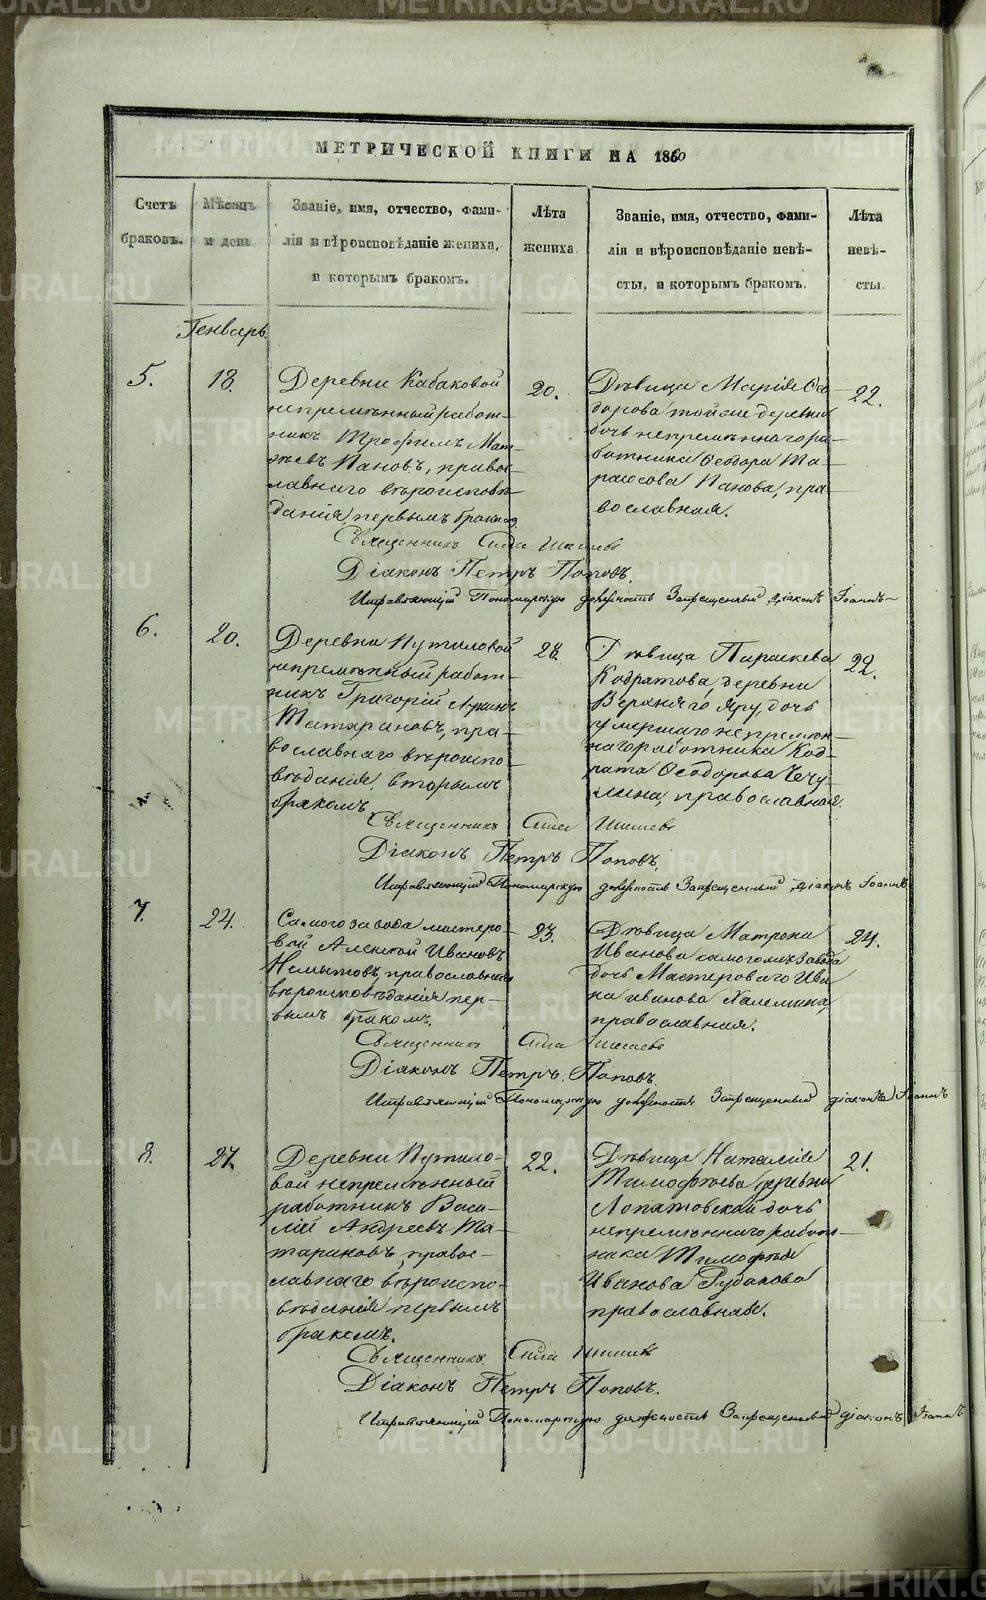 МЕТРИЧЕСКОЙ КНИГИ НА 1860
Счетъ
браковъ.
Мѣсяцъ
и день.
Званіе, имя, отчество, фами-
лія и вѣроисповѣданіе жениха,
и которымъ бракомъ.
Лѣта
жениха.
Званіе, имя, отчество, фами-
лія и вѣроисповѣданіе невѣ-
сты, и которымъ бракомъ.
Лѣта
невѣ-
сты.
Генварь.
5.
18.
Деревни Кабаковой
непремѣнный работ-
никъ Трофимъ Мат-
ѣевъ Пановъ, правос-
лавнаго вѣроисповѣ-
данія, первымъ бракомъ.
20.
Дѣвица Марія Ѳео-
дорова тойже деревни
дочь непремѣннаго ра-
ботника Ѳеодора Та-
расова Панова, пра-
вославная.
22.
Священникъ Сила Шишевъ
Діаконъ Петръ Поповъ.
Исправляющій Пономарскую должность Запрещенный діаконъ Іоаннъ
6.
20.
Деревни Путиловой
непремѣнный работ-
никъ Григорій Лукинъ
Татариновъ, пра-
вославнаго вѣроиспо-
вѣданія, вторымъ
бракомъ
28.
Дѣвица Параскева
Кодратова, деревни
Верхняго Яру, дочь
умершаго непремѣн-
наго работника Код-
рата Ѳеодорова Чечу-
лина, православная.
22.
Священникъ Сила Шишевъ
Діаконъ Петръ Поповъ.
Исправляющій Пономарскую должность Запрещенный діаконъ Іоаннъ
7.
24.
Самого завода мастеро-
вой Алексѣй Ивановъ
Немытовъ, православнаго
вѣроисповѣданія пер-
вымъ бракомъ.
23.
Дѣвица Матрона
Иванова самогожъ завода
дочь Мастероваго Ива-
на Иванова Халемина,
православная.
24.
Священникъ Сила Шишевъ
Діаконъ Петръ Поповъ.
Исправляющій Пономарскую должность Запрещенный діаконъ Іоаннъ
8.
27.
Деревни Путило-
вой непремѣнный
работникъ Васи-
лій Андреевъ Та-
тариновъ, правос-
лавнаго вѣроиспо-
вѣданія первымъ
бракомъ.
22.
Дѣвица Наталія
Тимофѣева деревни
Лопатовской дочь
непремѣннаго работ-
ника Тимофѣя
Иванова Рудакова
православная.
21.
Священникъ Сила Шишевъ
Діаконъ Петръ Поповъ.
Исправляющій Пономарскую должность Запрещенный діаконъ Іоаннъ
METRIKI.GASO-URAL.RU